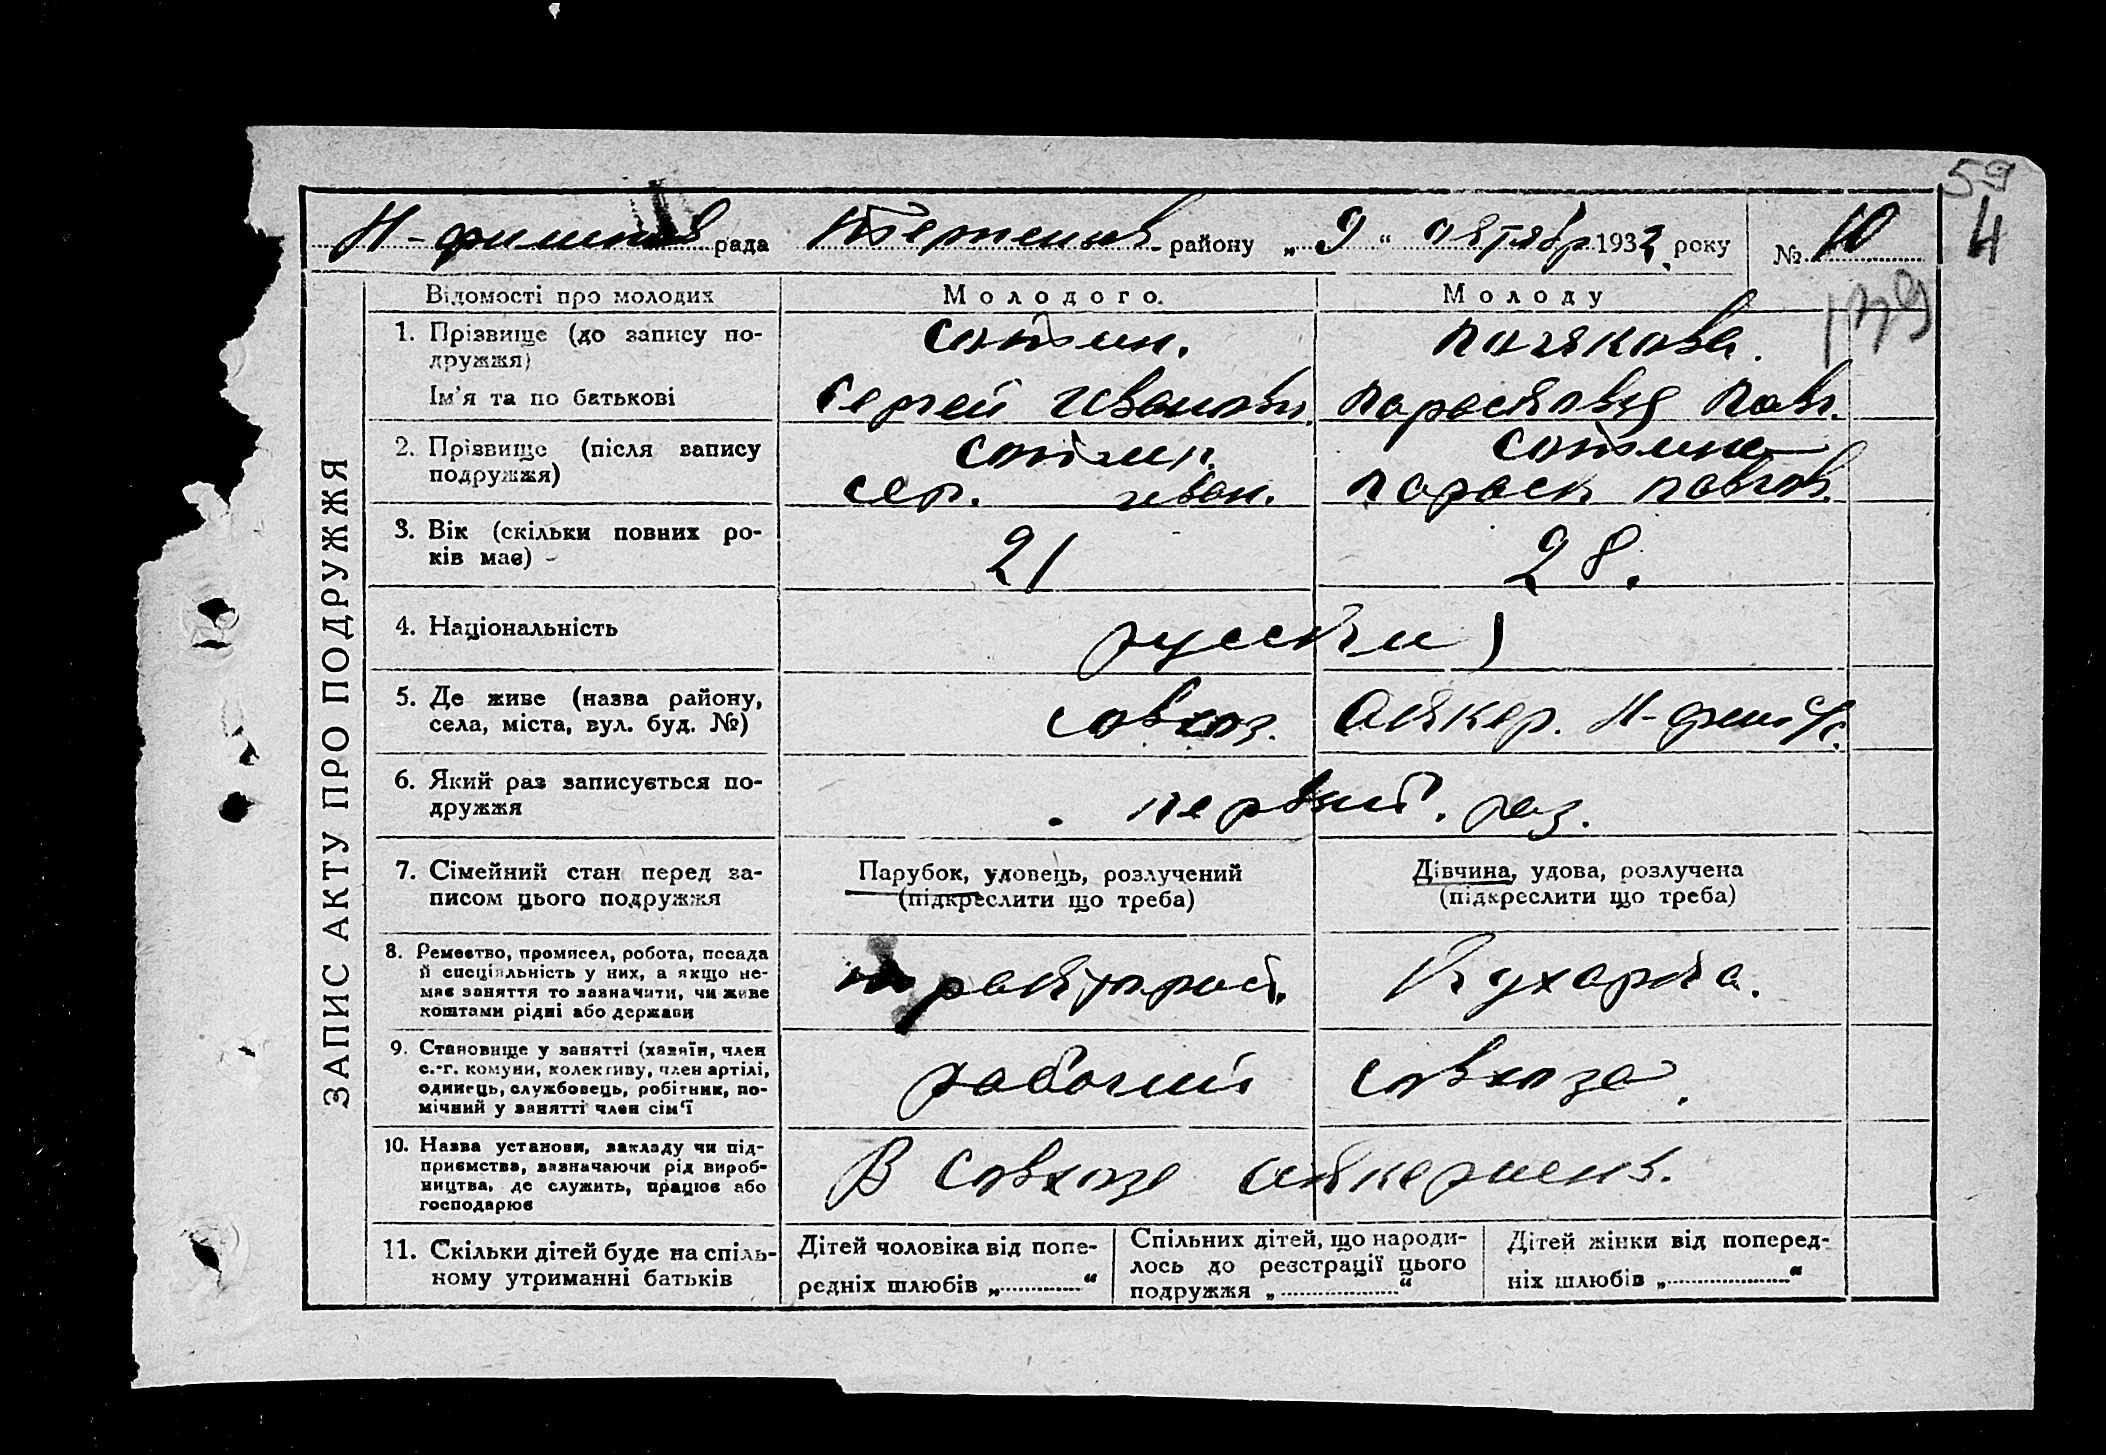 59
рада району „ 9 “ октябр 1932 року № 10
4
Відомості про молодих Молодого. Молоду
1. Прізвище (до запису подружжя) Сотин. Полякова.
Ім'я та по батькові Сергей Иванович Парасковия Павл.
2. Прізвище (після запису подружжя) Сотин. Сотина
Сер. Иван. Параск Павлов.
3. Вік (скільки повних років має) 21 28.
4. Національність русски
5. Де живе (назва району, села, міста, вул. буд. №) совхоз. Аскер. Н-
6. Який раз записується подружжя первий. раз.
7. Сімейний стан перед записом цього подружжя
Парубок, удовець, розлучений
(підкреслити що треба)
Дівчина, удова, розлучена
(підкреслити що треба)
8. Ремество, промисел, робота, посада
й спеціяльність у них, а якщо не-
має заняття то зазначити, чи живе
коштами рідні або держави
Кухарка.
9. Становище у занятті (хазяїн, член
с.-г. комуни, колективу, член артілі,
одинець, службовець, робітник, по-
мічний у занятті член сім'ї
рабочий совхоза.
10. Назва установи, закладу чи під-
приємства, зазначаючи рід вироб-
ництва, де служить, працює або
господарює
В совхозе
11. Скільки дітей буде на спіль-
ному утриманні батьків
Дітей чоловіка від попе-
редніх шлюбів „ “
Спільних дітей, що народи-
лось до реєстрації цього
подружжя „ “
Дітей жінки від поперед-
ніх шлюбів „ “
ЗАПИС АКТУ ПРО ПОДРУЖЖЯ